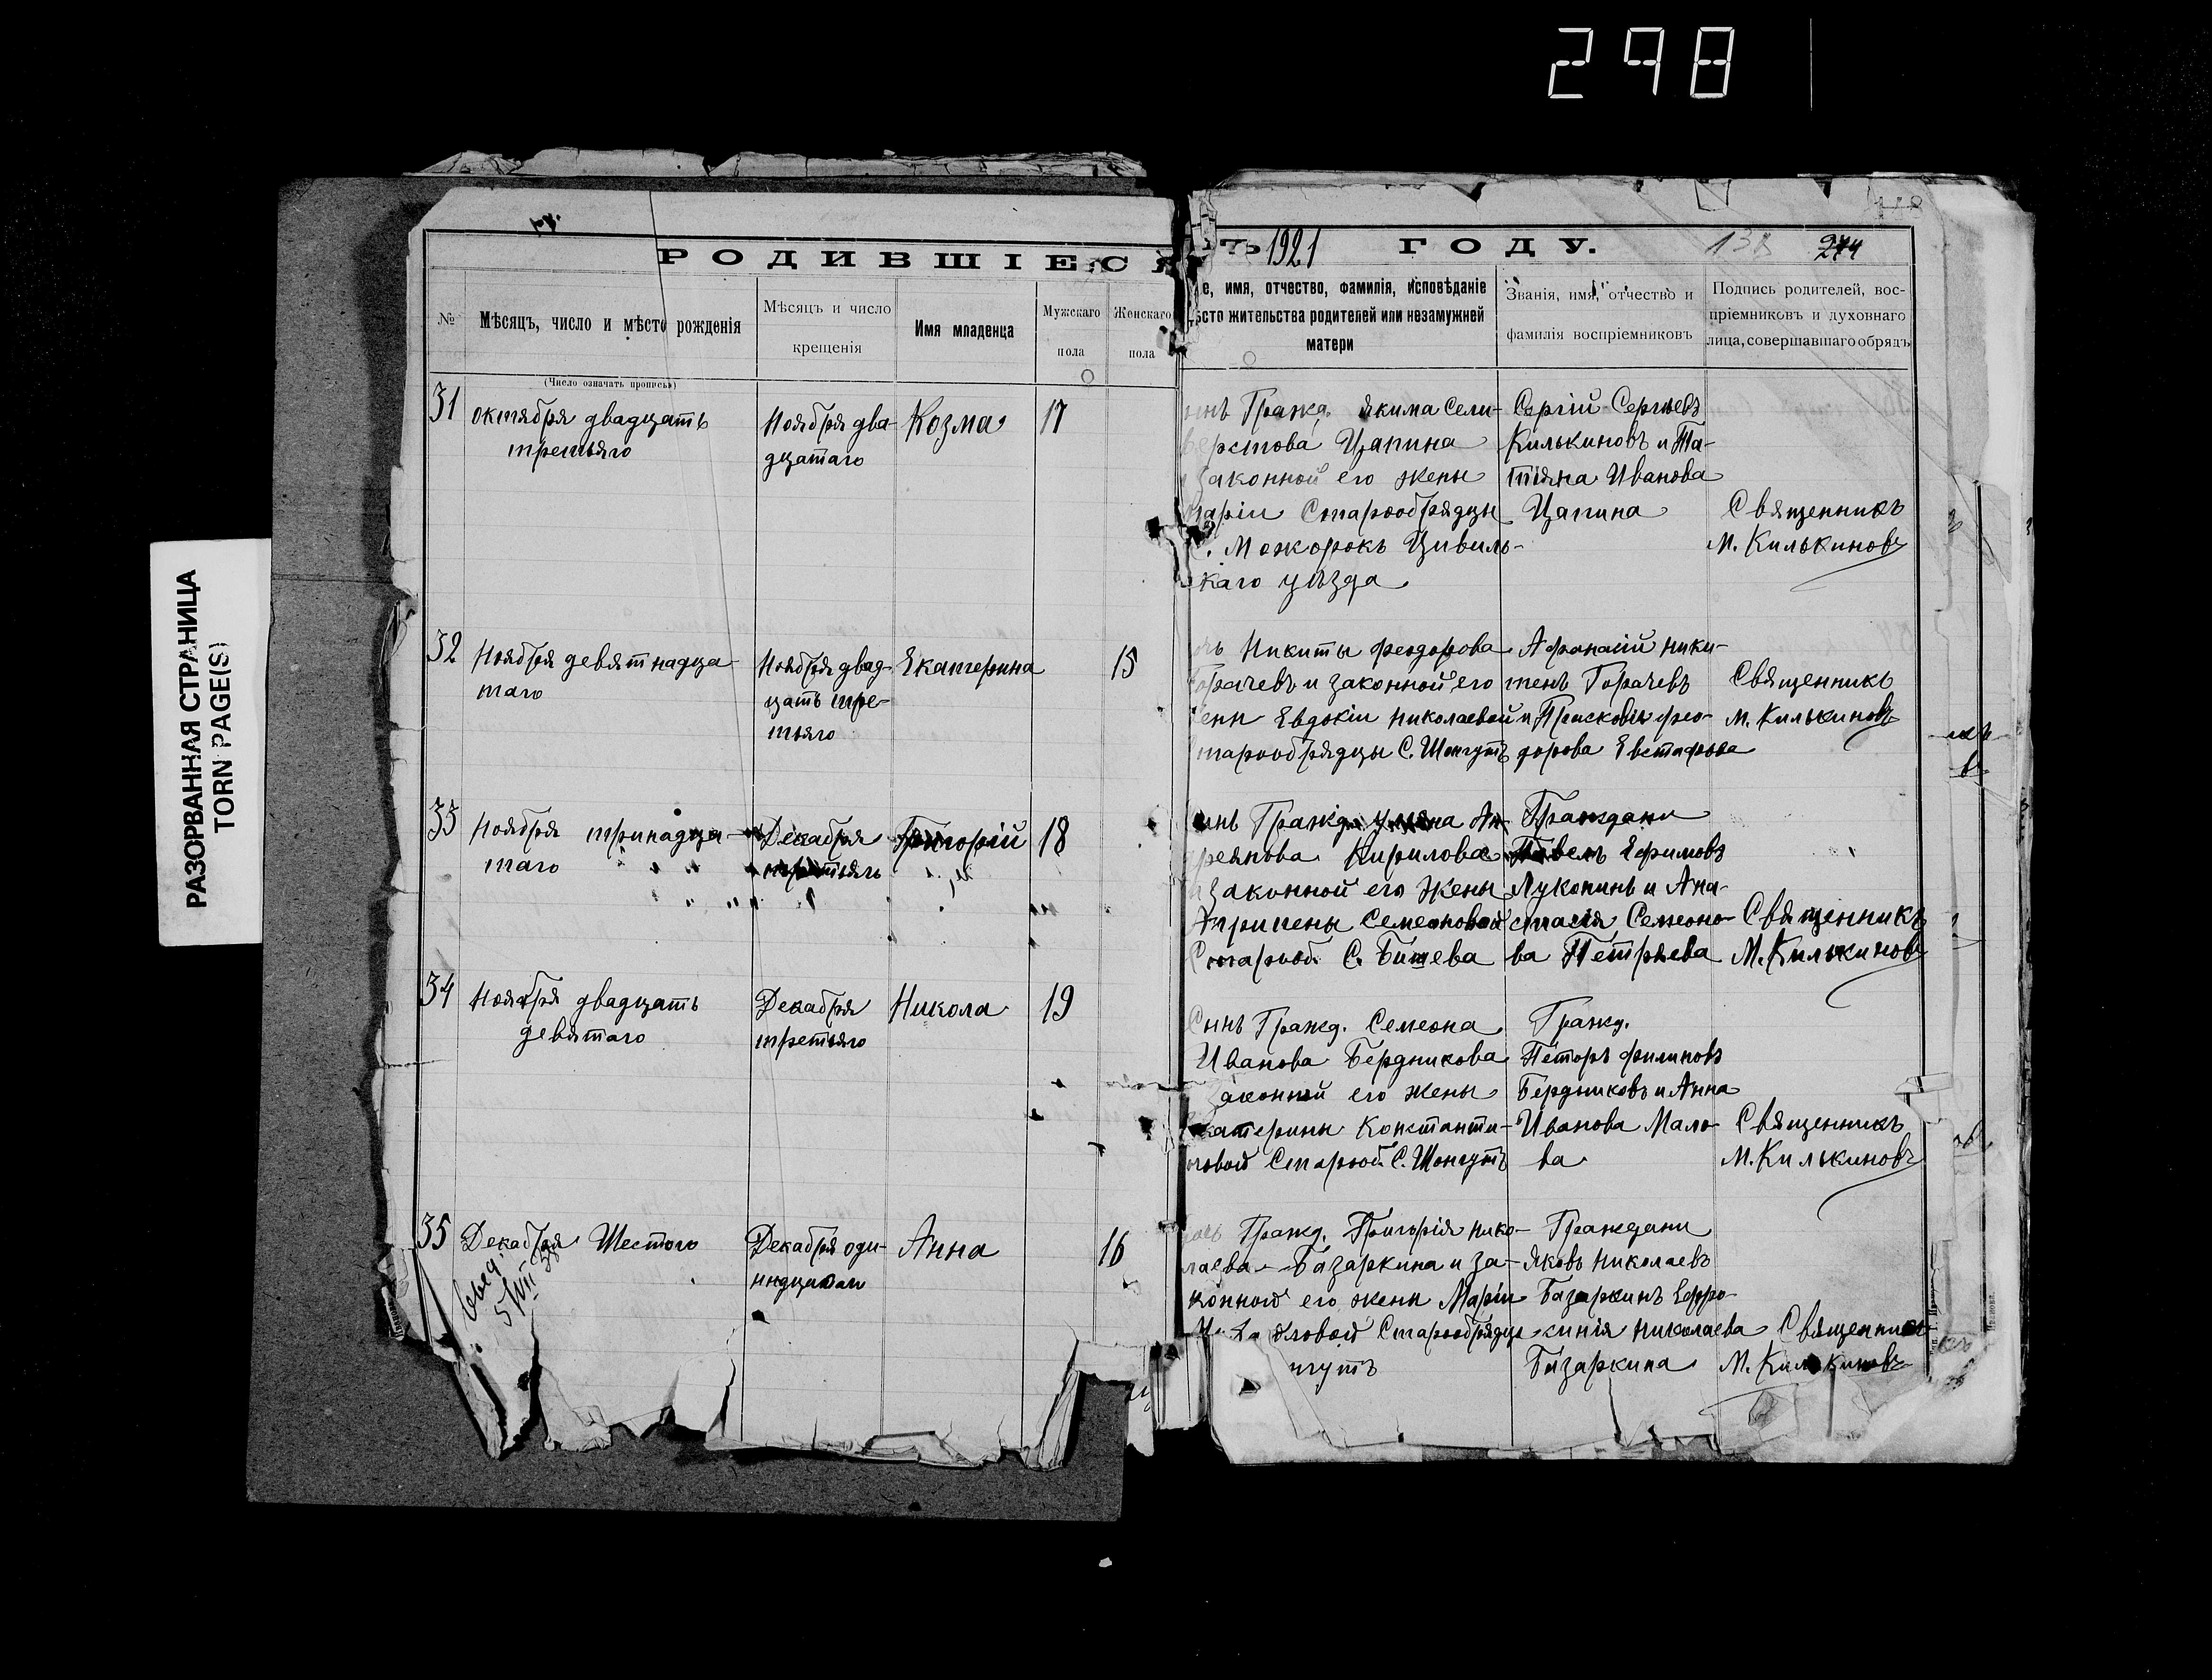 298
РАЗОРВАННАЯ СТРАНИЦА
TORN PAGE(S)
РОДИВШІЕСЯ
ТЪ 1921 ГОДУ.
138 274
№
Мѣсяцъ, число и мѣсто рожденія
(Число означать прописью)
Мѣсяцъ и число
крещенія
Имя младенца
Мужскаго
пола
Женскаго
пола
е, имя, отчество, фамилія, исповѣданіе
ѣсто жительства родителей или незамужней
матери
Званія, имя, отчество и
фамилія воспріемниковъ
Подпись родителей, вос-
пріемниковъ и духовнаго
лица, совершавшаго обрядъ
31
октября двадцать
третьяго
Ноября два-
дцатаго
Козма
17
Гражд. якима Сели-
верстова Цапина
законной его жены
Маріи Старообрядцы
С. Можорокъ Цивиль-
скаго уѣзда
Сергій Сергѣевъ
Килькиновъ и Та-
тіяна Иванова
Цапина
Священникъ
М. Килькиновъ
32
Ноября девятнадца-
таго
Ноября двад-
цать тре-
тьяго
Екатерина
15
Никиты феодорова
Горачевъ и законной его
жени Евдокіи николаевой
тарообрядцы С. Шонгутъ
Афонасій ники-
тенъ Горачевъ
и Прасковія фео-
дорова Евстафьева
Священникъ
М. Килькиновъ
33
Ноября тринадца-
таго
Декабря
третьяго
Григорій
18
Гражд. Ан-
дреянова Кирилова
и законной его жены
Агрипены Семеоновой
Старооб. С. Бишева
Граждани
Павелъ Ефимовъ
Луконинъ и Ана-
стасія Семеоно-
ва Петряева
Священникъ
М. Килькиновъ
34
Ноября двадцать
девятаго
Декабря
третьяго
Никола
19
Сынъ Гражд. Семеона
Иванова Бердникова
законной его жены
Екатерины Константи-
новой Старооб. С. Шонгутъ
Гражд.
Петоръ филиповъ
Бердниковъ и Анна
Иванова Мало-
ва
Священникъ
М. Килькиновъ
35
Декабря Шестого
5/VIII 38
Декабря оди-
Анна
16
Гражд. Григорія нико-
лаева Базаркина и за-
конной его жени Маріи
Старообрядцы
нгутъ
Граждани
Яковъ николаевъ
Базаркинъ Ефро-
синія николаева
Базаркина
Священникъ
М. Килькиновъ